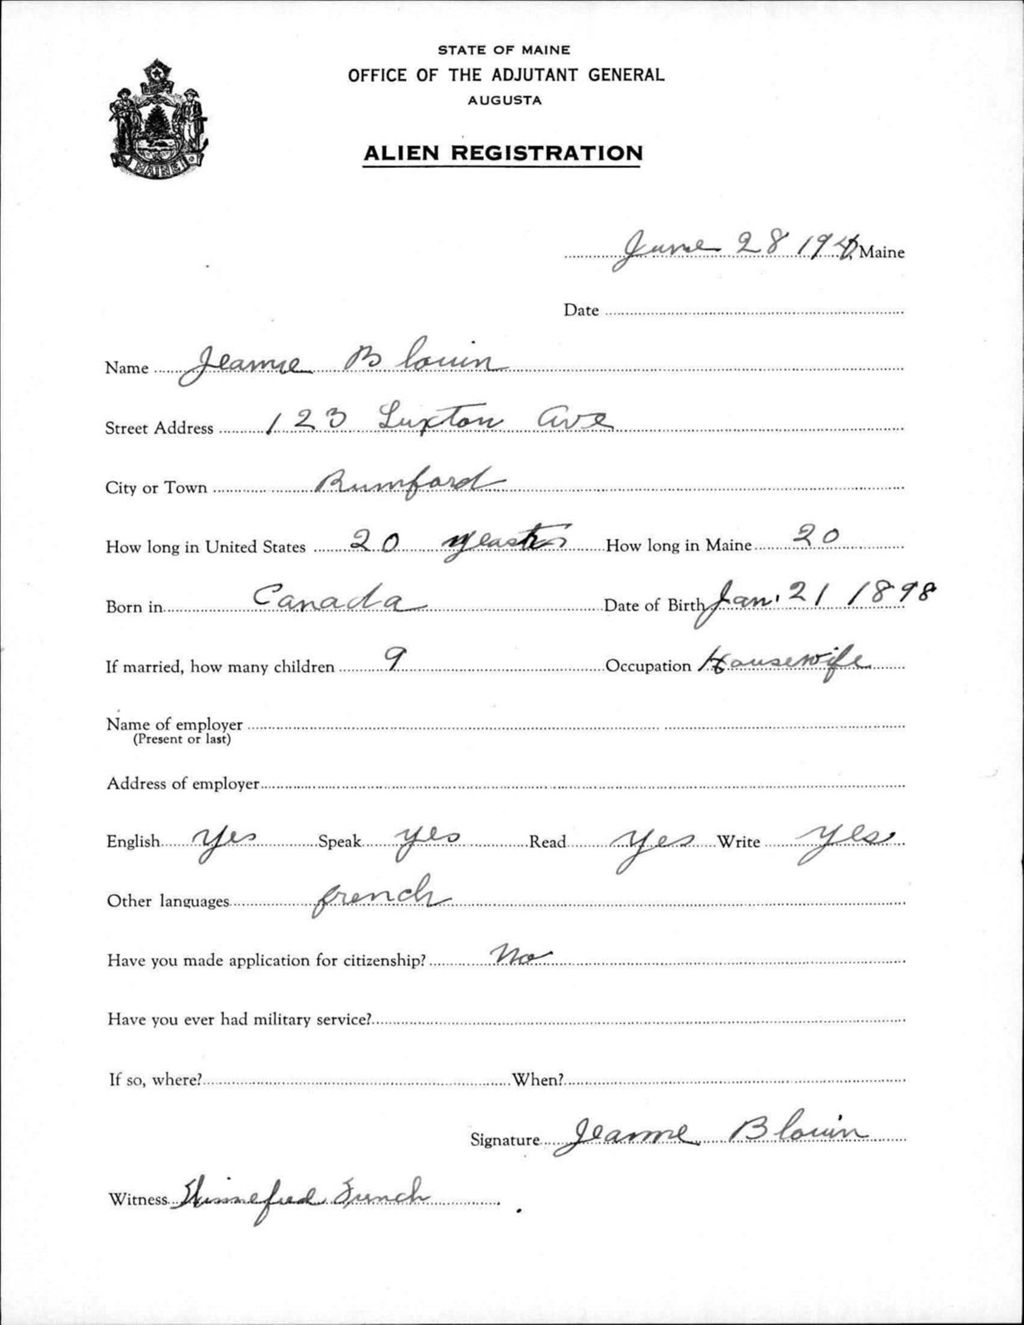 STATE OF MAINE
OFFICE OF THE ADJUTANT GENERAL
AUGUSTA
ALIEN REGISTRATION
MAINE
June 28 194 Maine
Date
Name Jeanne Blouin
Street Address 123 Luxton Ave
City or Town Rumford
How long in United States 20 years How long in Maine 20
Born in Canada Date of Birth Jan. 21 1898
If married, how many children 9 Occupation Housewife
Name of employer
(Present or last)
Address of employer
English Yes Speak yes Read Yes Write yes
Other languages french
Have you made application for citizenship? No
Have you ever had military service?
If so, where? When?
Signature Jeanne Blouin
Witness Winnefred French